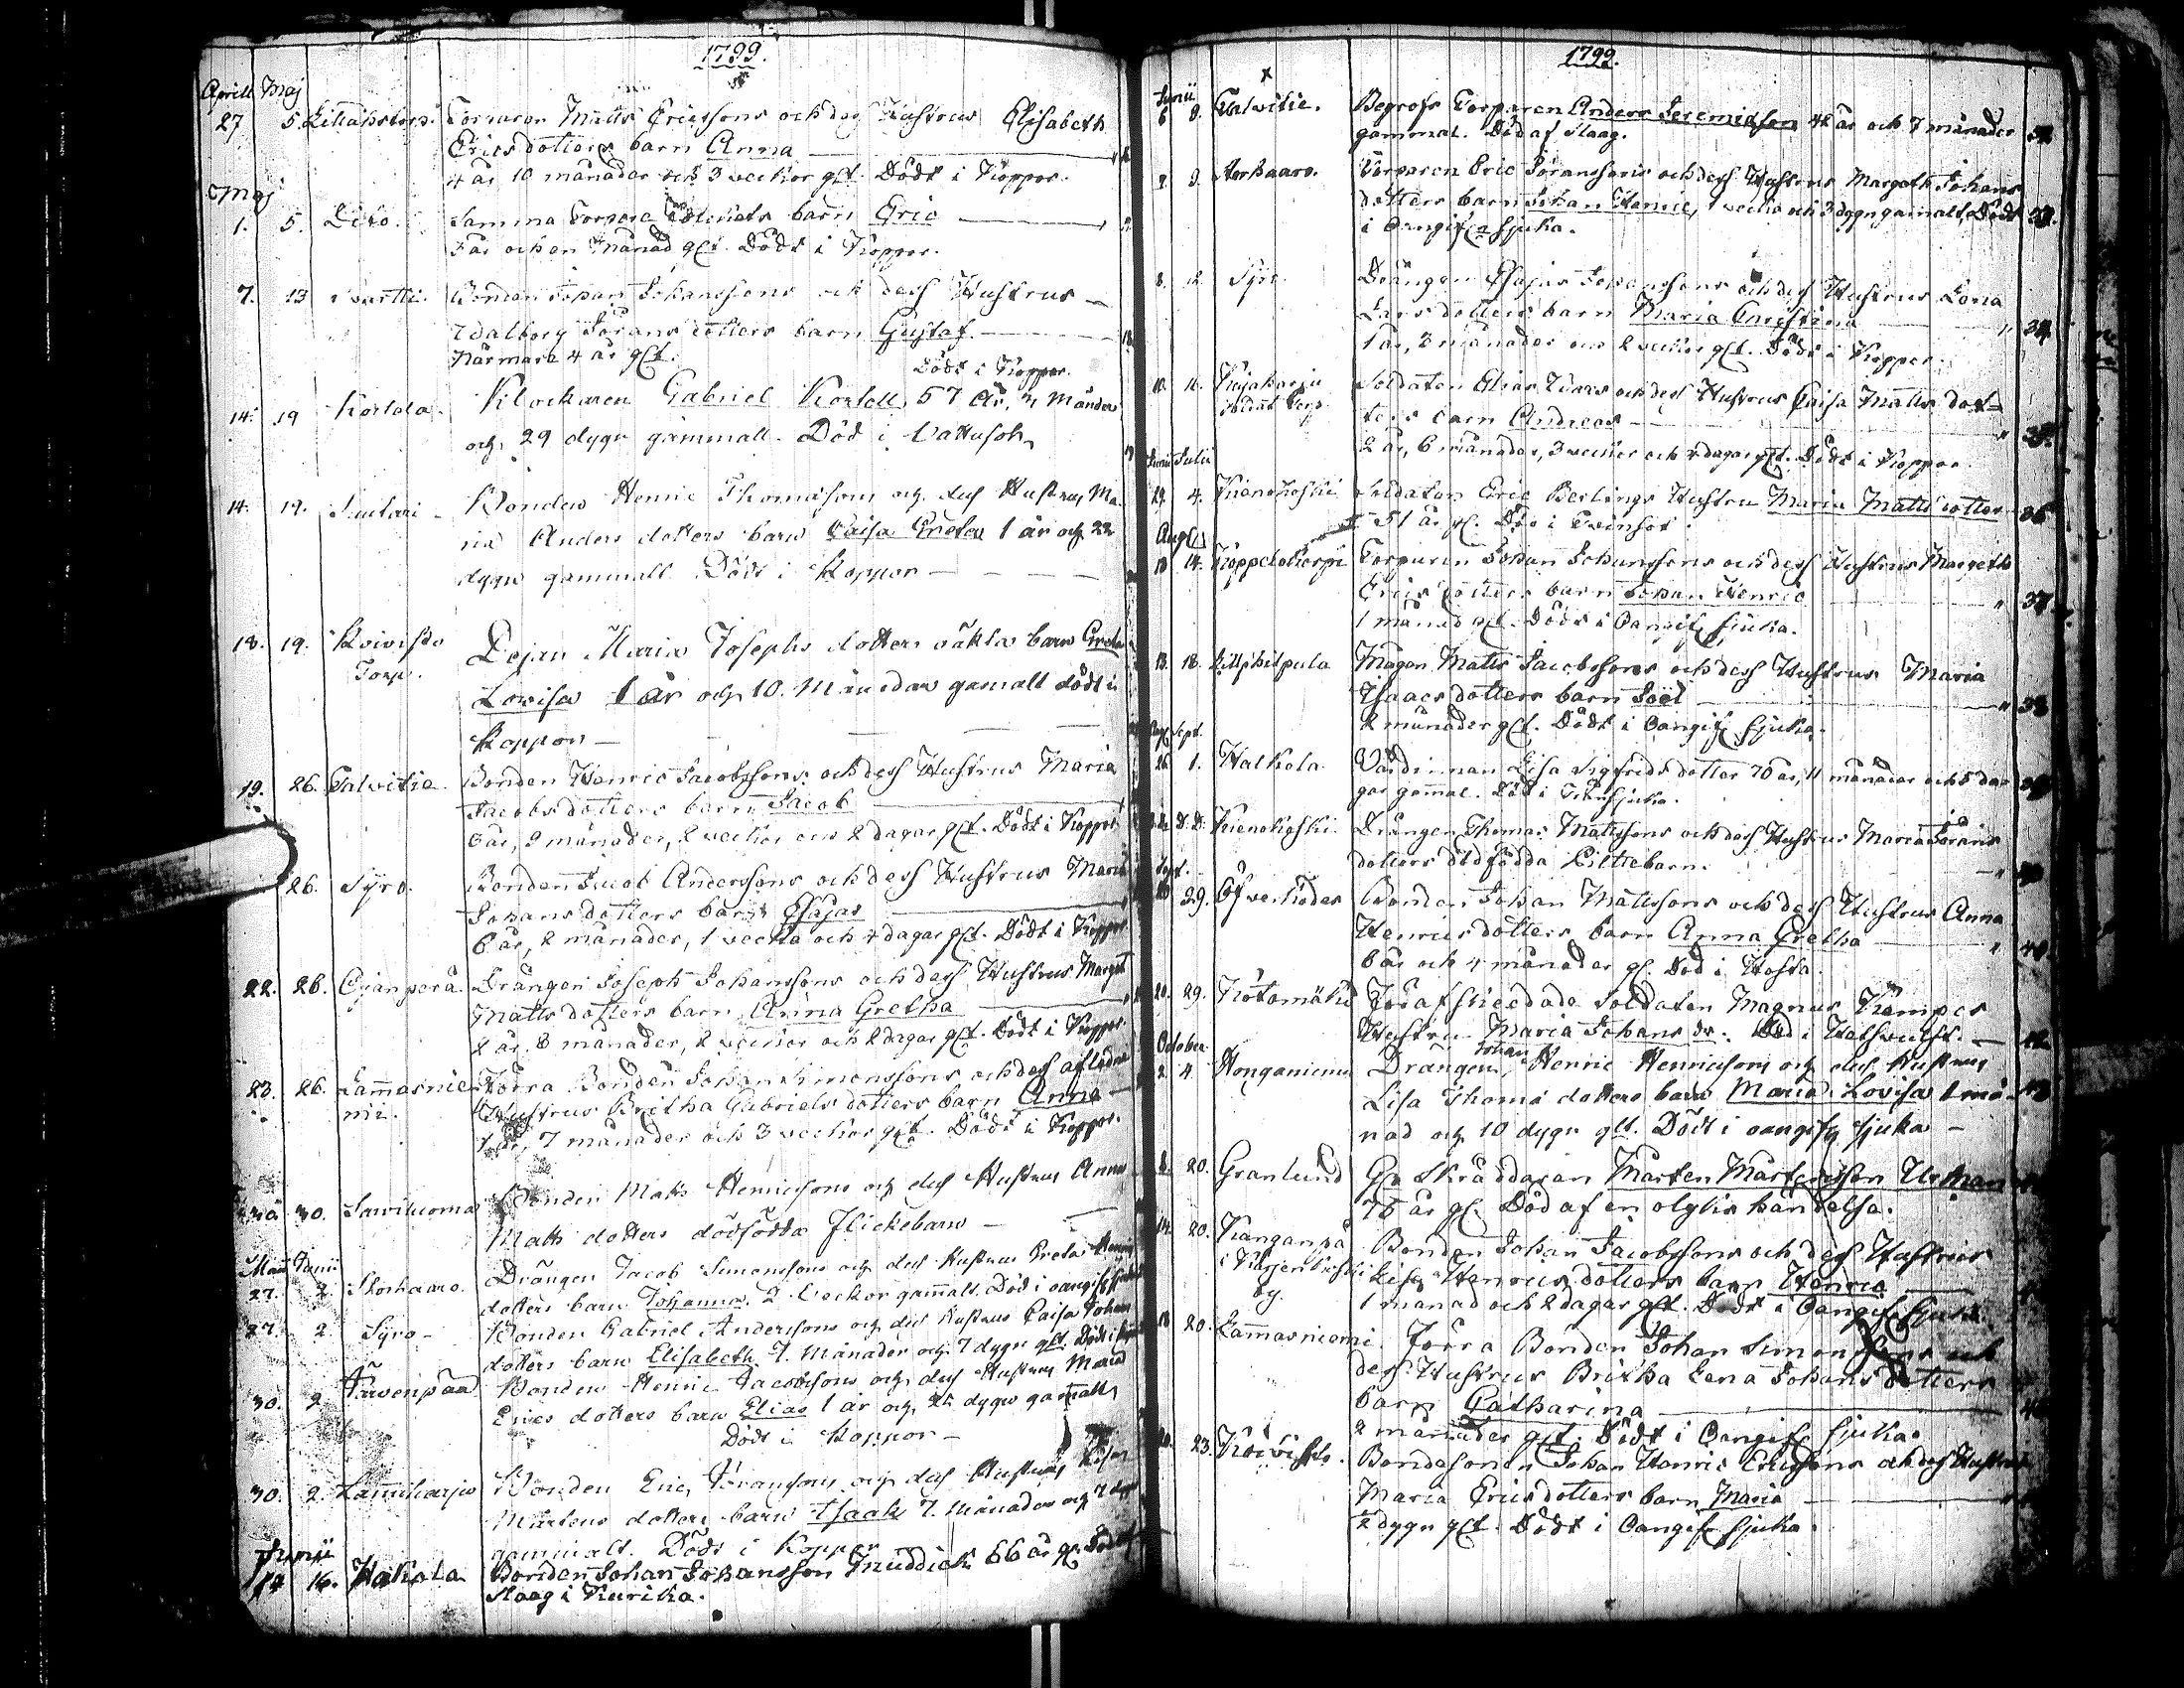 1799.
Aprill Maj
27 5. Torparen Matts Ericssons och dess Hustrus Elisabeth
Ericsdotters barn Anna
4 år 10 månader och 3 veckor glt. Dödt i Koppor.
Maj
1. 5. Dito. Samma Torpare barn Eric
3 år och en månad glt. Dödt i Koppor.
7. 13 Bonden Johan Johanssons och dess Hustrus
Walborg Görans dotters barn Gustaf.
Närmare 4 år glt. Dödt i Koppor.
14. 19 Korkola Klockaren Gabriel 57 År, Månader
och 29 dygn gammall. Död i Vattusoh
14. 19. Bonden Henric Thomæsons och dess Hustrus Ma
ria Anders dotters barn Caisa Greta 1 år och 22
dygn gammalt Dödt i Koppor
18. 19. Koivisto Pigan Maria Josephs dotters oäkta barn Greta
Torp. Lovisa 1 år och 10. Månader gamalt dödt i
Koppor
19. 26. Talvitie. Bonden Henric Jacobssons och dess Hustrus Maria
Jacobs dotters barn Jacob
6 år, 9 månader, 2 veckor och 2 dagar glt. Dödt i Koppor
26. Syrö. Bonden Jacob Anderssons och dess Hustrus Maria
Johans dotters barn Esajas
6 år, 2 månader, 1 vecka och 4 dagar glt. Dödt i Koppor
22. 26. Ojanperä. Drängen Joseph Johanssons och dess Hustrus Marget
Matts dotters barn Anna Gretha
2 år 8 månader, 2 veckor och 2 dagar glt. Dödt i Koppor.
23. 26. Lammasnie Förra Bonden Johan Simonssons och dess aflidna
mi. Hustrus Britha Gabriels dotters barn Anna
1 år, 7 månader och 3 veckor glt. Dödt i Koppor.
30. Sawiluoma Bonden Matts Henricssons och dess Hustrus Anna
Matts dotters dödfödda flickebarn
Maii Junii
27. 2. Skorhaaro. Drängen Jacob Simonssons och dess Hustrus Greta
dotters barn Johanna. 2 Veckor gamalt. Död i oangifven
27. 2 Syrö Bonden Gabriel Anderssons och dess Hustrus Caisa Johans
dotters barn Elisabeth 7. Månader och 7 dygn glt. Dödt i
30. 2 Järvenpää Bonden Henric Jacobssons och dess Hustrus Maria
Erics dotters barn Elias 1 år och dygn gamalt
Dödt i Koppor
30. 2. Lamiharju Bonden Eric Göranssons och dess Hustrus Lisa
Mårtens dotters barn Isaak 7. Månader och 7 dygn
gammalt. Dödt i Koppor
Junii
14 16. Hakola Bonden Johan Johansson Muddick 66 år gl. Död
Slaag i Kurika.
1799.
Junii
6 9. Talvitie. Begrofs Torparen Anders Jeremiasson 42 år och 7 månader
gammal. Död af Slaag. 32
9. Torparen Eric Göranssons och dess Hustrus Margeth Johans
dotters barn Johan Henric, 1 vecka och 3 dygn gamalt. Dödt 33.
i Oangifven Sjuka.
8. 12. Syrö. Drängen Esajas Josephssons och dess Hustrus Lena
Lars dotters barn Maria Christina 34
1 år, 2 månader och 2 veckor glt. Dödt i Koppor.
10. 16. Kujaharju Soldaten Elias Widars och dess Hustrus Caisa Matts dot
Soldat Torp. ters barn Andreas 35.
2 år, 6 månader, 3 veckor och 4 dagar glt. Dödt i Koppor.
Junii Julii
29. 4. Kienokoski Soldaten Eric Berlings Hustru Maria Matts dotter 36
51 år gl. Död i Tvinsot.
Aug
13 14. Koppelokorpi Torparen Johan Johanssons och dess Hustrus Margeth
Erics dotters barn Johan Henric 37
1 månad glt. Dödt i Oangifven Sjuka.
13. 18. Lillphilpula Mågen Matts Jacobssons och dess Hustrus Maria
Isaacs dotters barn Joel 38
2 månader glt. Dödt i Oangifven Sjuka.
Aug. Sept.
26. 1. Halkola Värdinnan Lisa Sigfrids dotter 70 år, 11 månader och 5 da
gar gammal. Död i 39
Kienokoski Drängen Thomas Mattssons och dess Hustrus Maria Görans
dotters dödfödda Piltebarn.
Sept.
29. Öfverkoder Bonden Johan Mattssons och dess Hustrus Anna
Henrics dotters barn Anna Gretha 41
6 år och 4 månader gl. Död i Hosta.
20. 29. Kotomäki Förafskedade Soldaten Magnus Kämpes
Hustru Maria Johans dr. Död i Halssvulst. 42
October
2. 4. Honganiemi Drängen Johan Henric Henricssons och dess Hustrus
Lisa Thomæ dotters barn Maria Lovisa 1 må 43
nad och 10 dygn glt. Dödt i oangifven sjuka
20. Granlund Skräddaren Mårten Mårtensson
75 år gl. Död af en olyks händelse.
14. 20. Kånganpä Bonden Johan Jacobssons och dess Hustrus
i Lisa Henrics dotters barn Henric
by. 1 månad och 2 dagar glt. Dödt i Oangifven Sjuka.
18 20. Lammasniemi. Förra Bonden Johan Simonssons och
dess Hustrus Britha Lena Johans dotters
barn Catharina 46
2 månader glt. Dödt i Oangifven Sjuka.
20. 23. Koivisto. Bondesonen Johan Henric Ericssons och dess Hustrus
Maria Ericsdotters barn Maria
2 dygn glt. Dödt i Oangifven Sjuka.